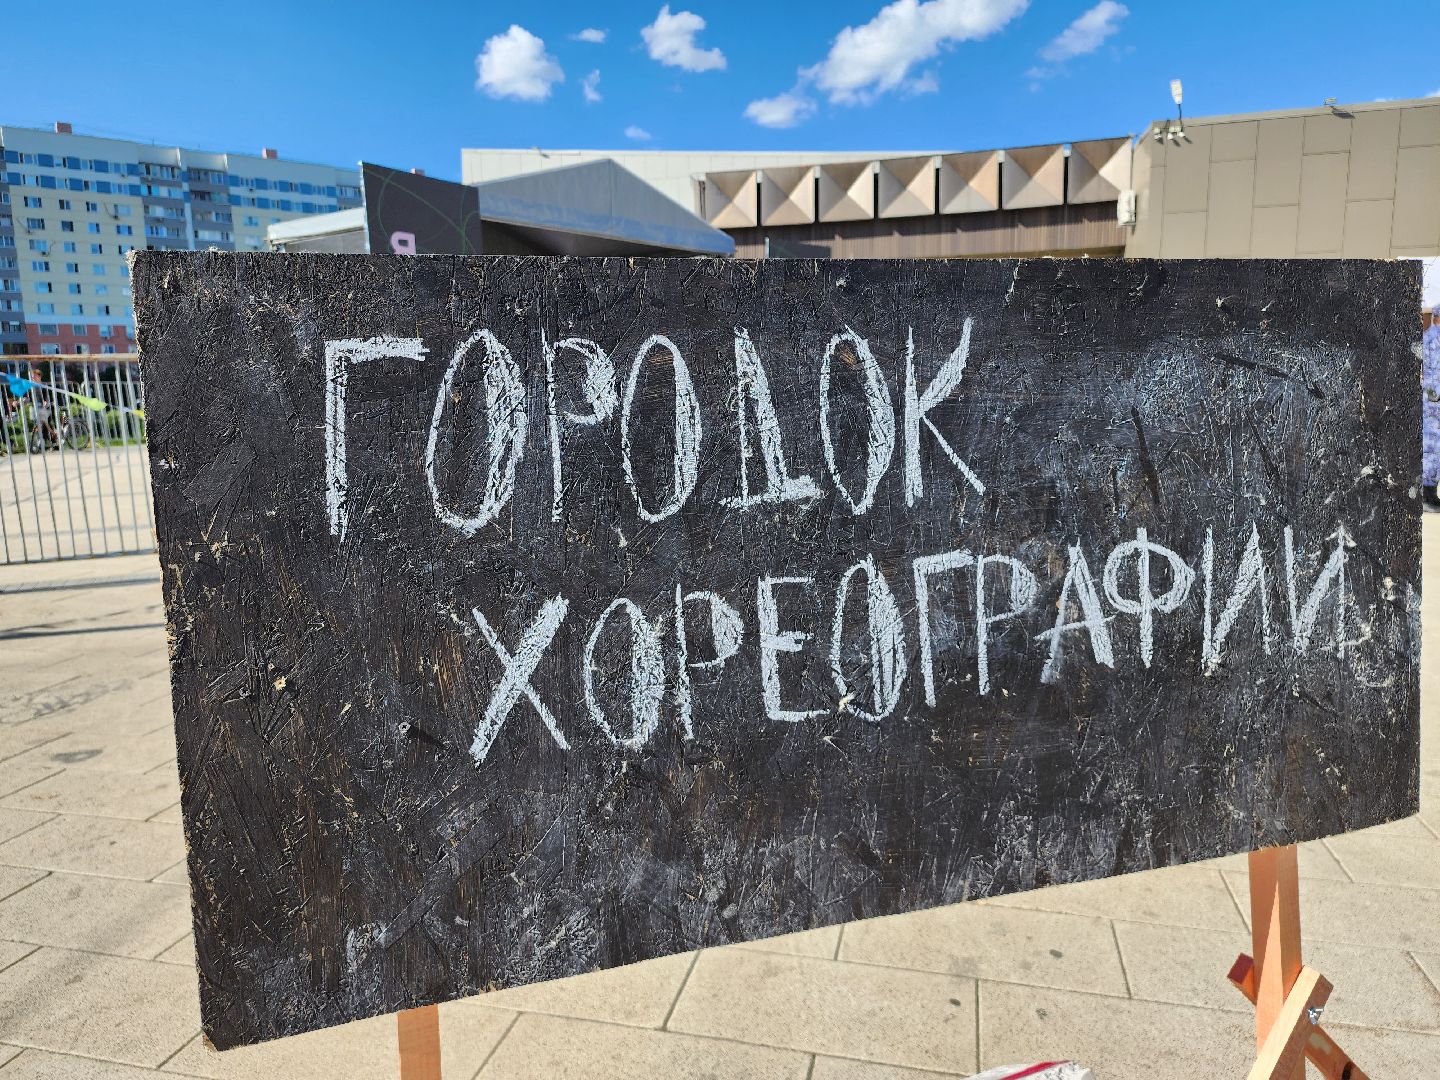 ГОРОДОК
ХОРЕОГРАФИИ